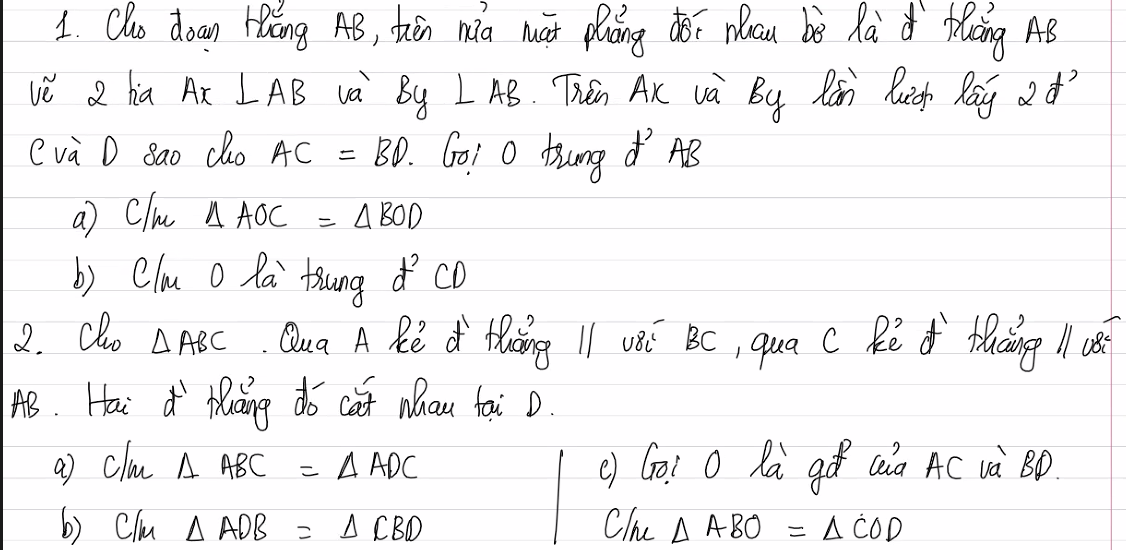 1. Cho đoạn thẳng AB, trên nửa mặt phẳng đối nhau bờ là đ' thẳng AB
vẽ 2 tia Ax ⊥ AB và By ⊥ AB. Trên Ax và By lần lượt lấy 2 đ'
C và D sao cho AC = BD. Gọi O trung đ' AB
a) C/m Δ AOC = Δ BOD
b) C/m O là trung đ' CD
2. Cho Δ ABC. Qua A kẻ đ' thẳng // với BC, qua C kẻ đ' thẳng // với
AB. Hai đ' thẳng đó cắt nhau tại D.
a) C/m Δ ABC = Δ ADC
b) C/m Δ ADB = Δ CBD
c) Gọi O là gđ' của AC và BD.
C/m Δ ABO = Δ COD